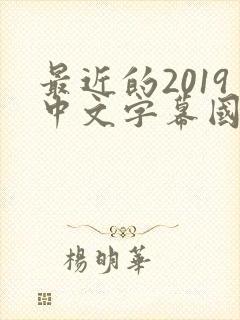 最近的2019
中文字幕國
楊明華